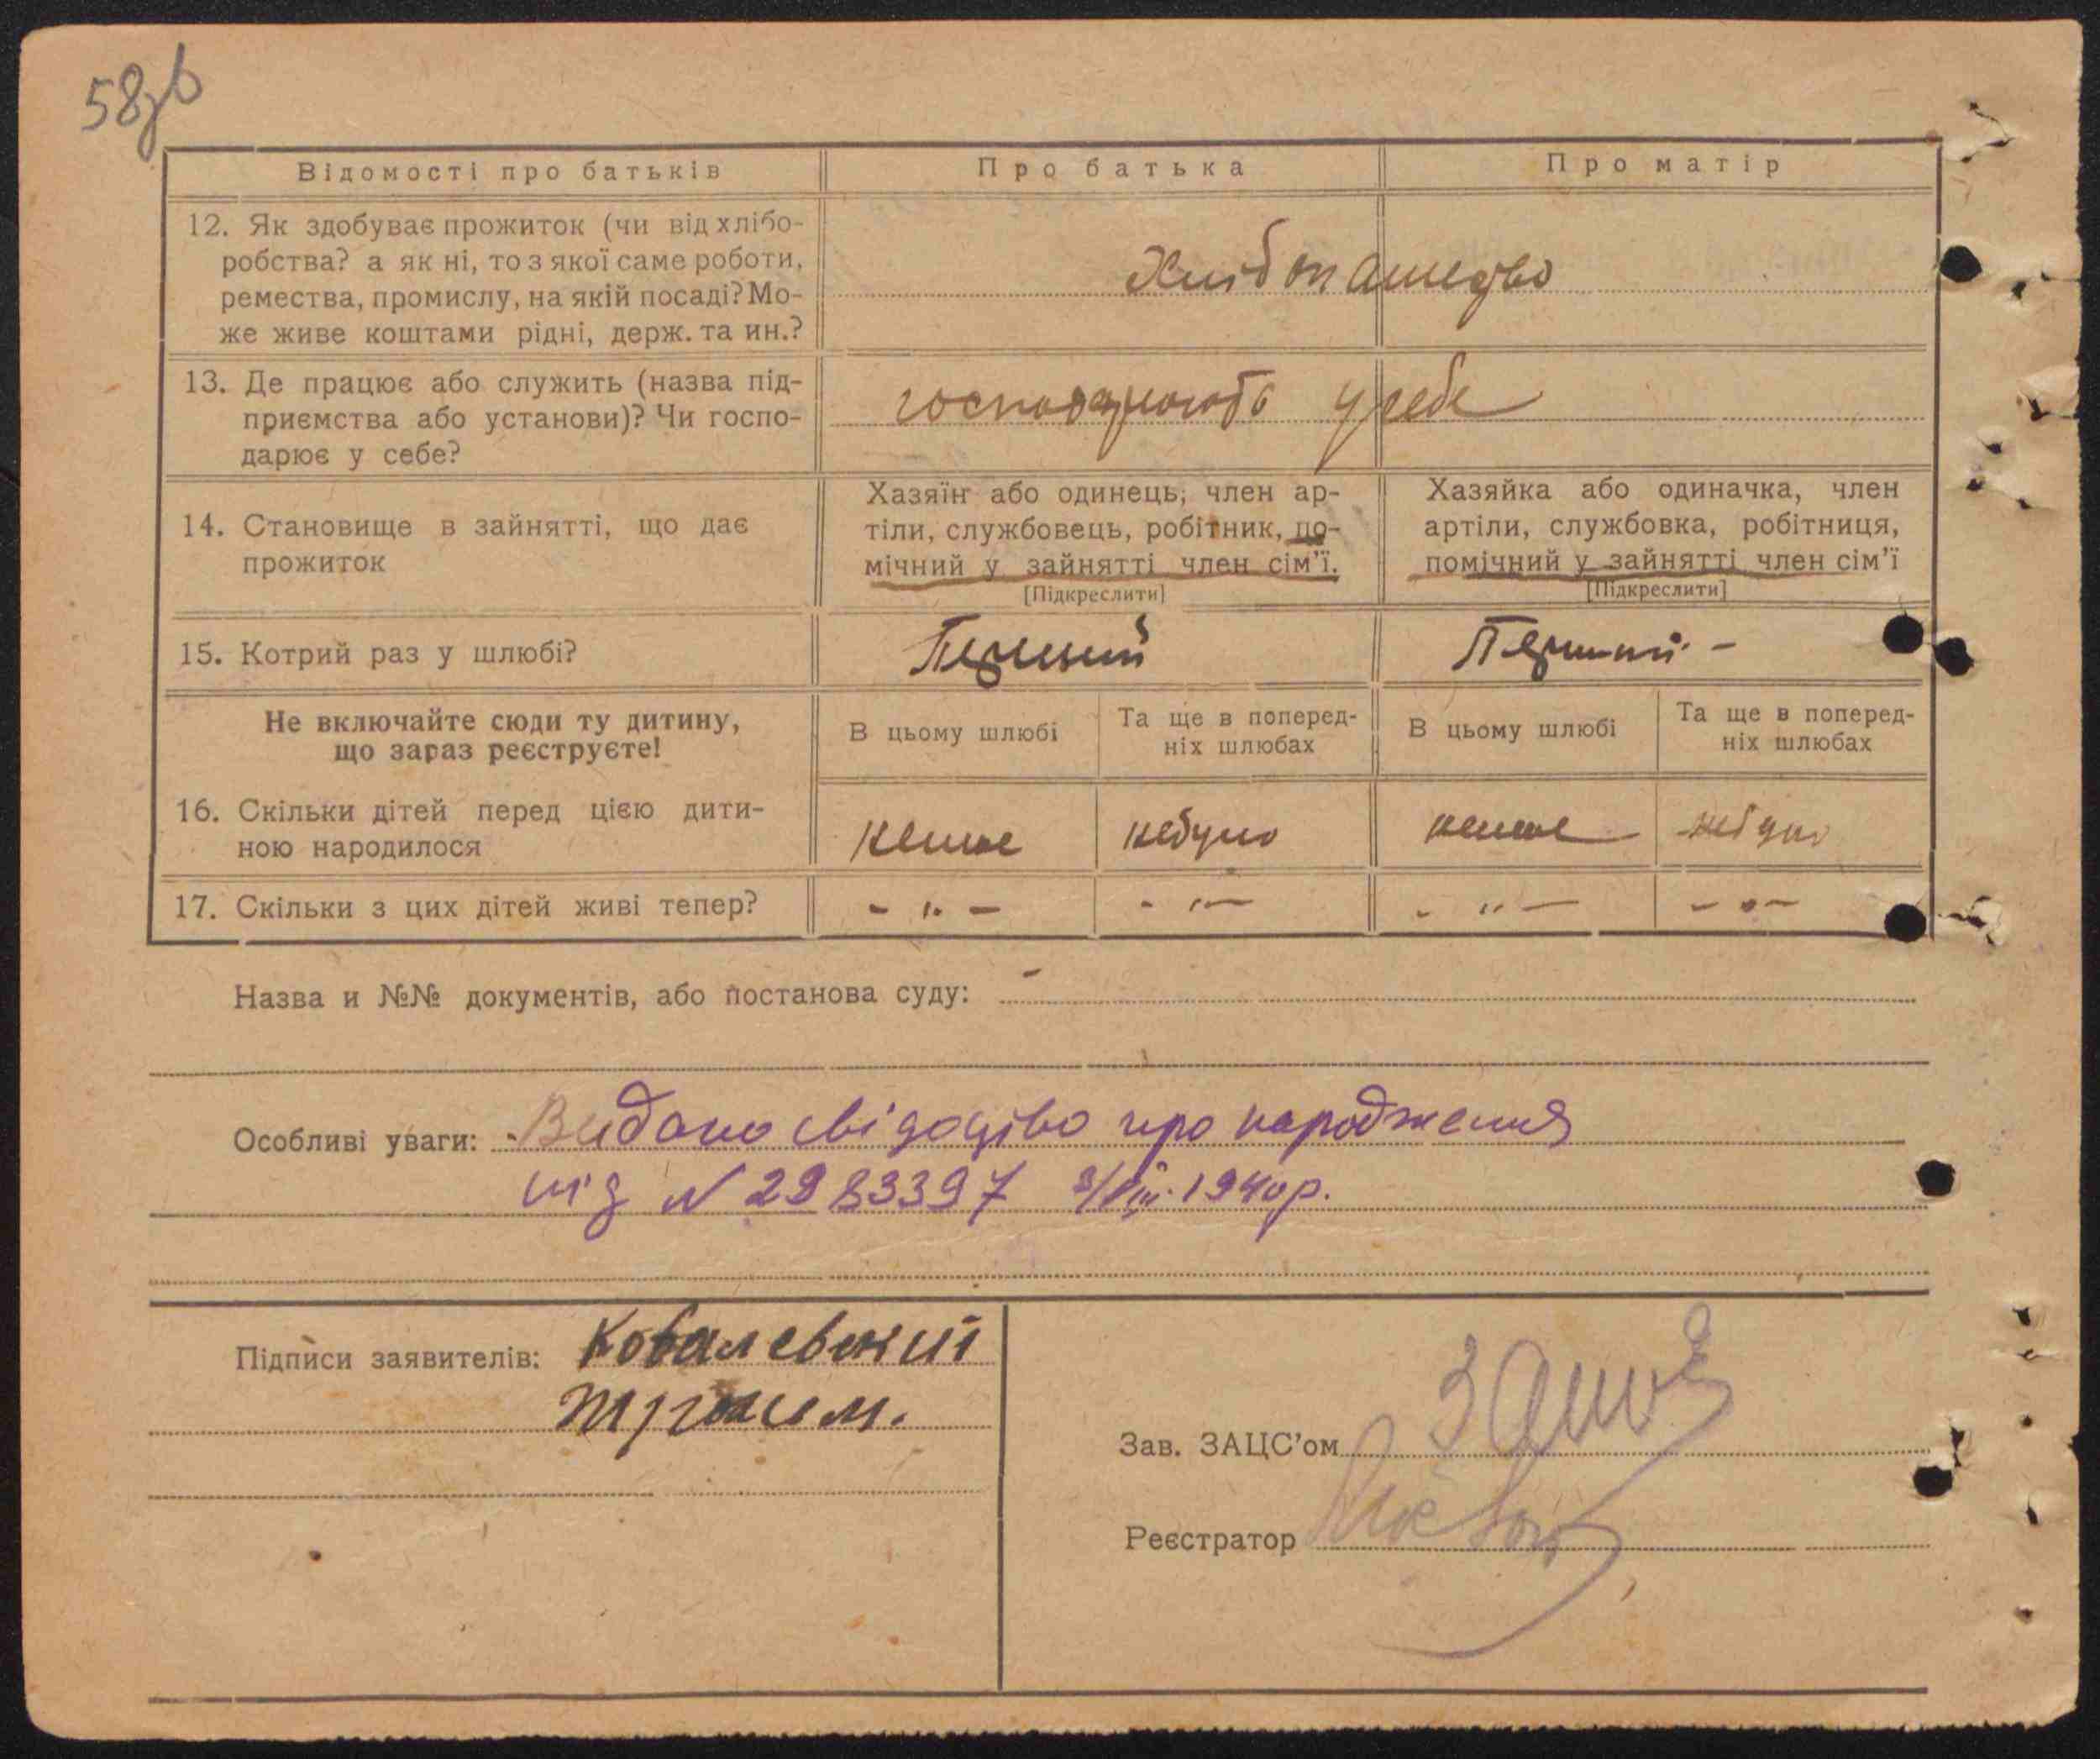 58зв
Відомості про батьків
Про батька
Про матір
12. Як здобуває прожиток (чи від хлібо-
робства? а як ні, то з якої саме роботи,
ремества, промислу, на якій посаді? Мо-
же живе коштами рідні, держ. та ин.?
Хлібопашество
13. Де працює або служить (назва під-
приємства або установи)? Чи госпо-
дарює у себе?
господарюють у себе
14. Становище в зайнятті, що дає
прожиток
Хазяїн або одинець, член ар-
тіли, службовець, робітник, по-
мічний у зайнятті член сім'ї.
[Підкреслити]
Хазяйка або одиначка, член
артіли, службовка, робітниця,
помічний у зайнятті член сім'ї
[Підкреслити]
15. Котрий раз у шлюбі?
Перший
Перший -
Не включайте сюди ту дитину,
що зараз реєструєте!
В цьому шлюбі
Та ще в поперед-
ніх шлюбах
В цьому шлюбі
Та ще в поперед-
ніх шлюбах
16. Скільки дітей перед цією дити-
ною народилося
небуло
небуло
17. Скільки з цих дітей живі тепер?
- " -
- " -
- " -
- " -
Назва и №№ документів, або постанова суду: -
Особливі уваги: Видано свідоцтво про народження
під N 2983397 3/VIII 1940р.
Підписи заявителів: Ковалевский
Зав. ЗАЦС'ом
Реєстратор